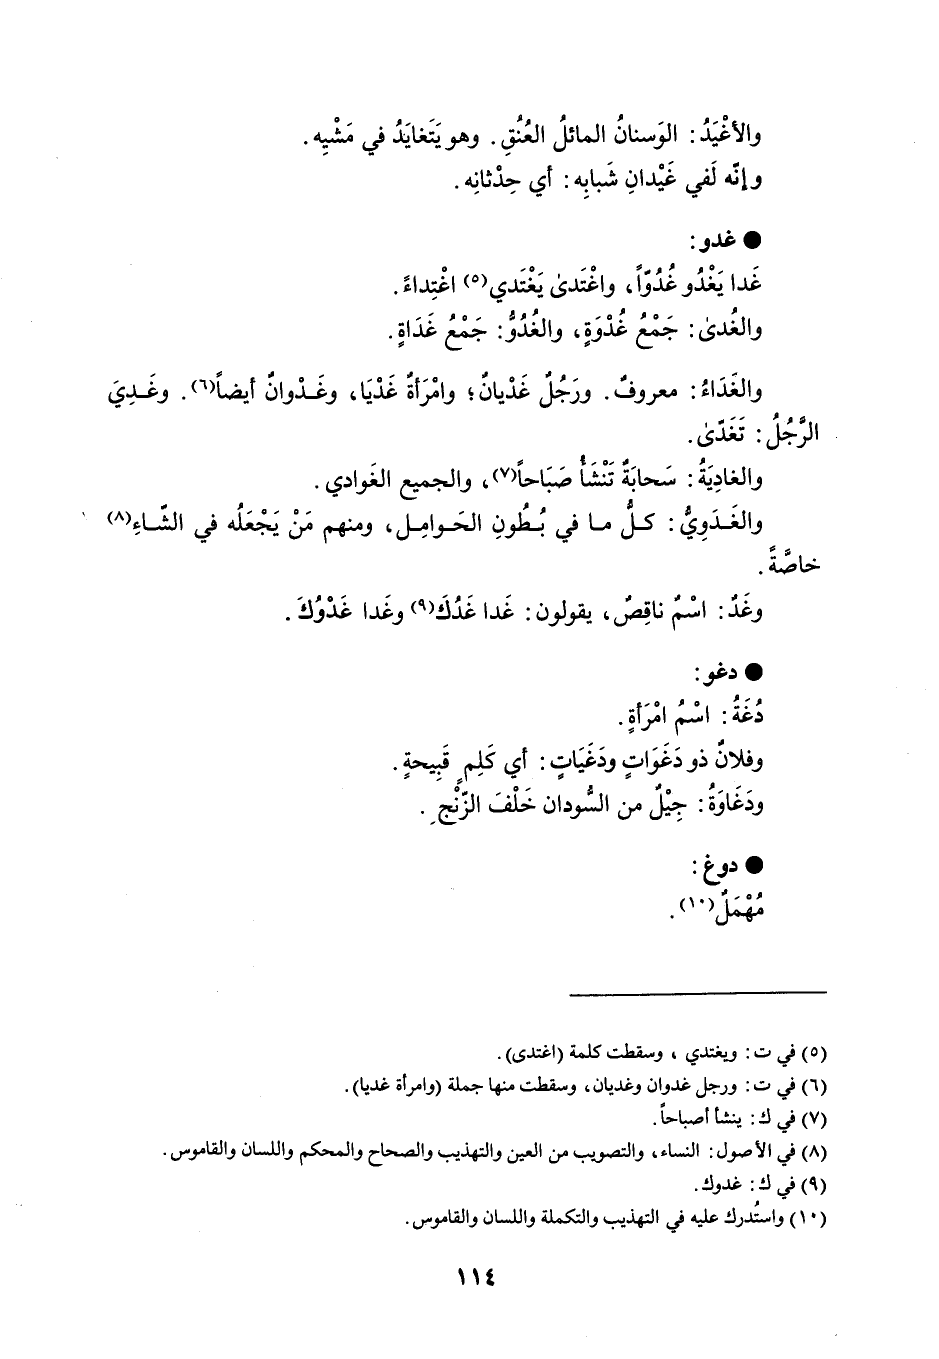 والأغْيَدُ: الوَسنانُ المائلُ العُنُقِ. وهو يَتَغايَدُ في مَشْيِه.
وإنّه لَفي غَيْدانِ شَبابِه: أي حِدْثانِه.
● غدو:
غَدا يَغْدُو غُدُوّاً، واغْتَدىٰ يَغْتَدي(٥) اغْتِداءً.
والغُدىٰ: جَمْعُ غُدْوَةٍ، والغُدُوُّ: جَمْعُ غَدَاةٍ.
والغَدَاءُ: معروفٌ. ورَجُلٌ غَدْيانٌ؛ وامْرَأةٌ غَدْيَا، وغَـدْوانٌ أيضاً(٦). وغَـدِيَ
الرَّجُلُ: تَغَدّىٰ.
والغادِيَةُ: سَحابَةٌ تَنْشَأُ صَبَاحاً(٧)، والجميع الغَوادي.
والغَـدَوِيُّ: كـلُّ مـا في بُـطُونِ الحَـوامِـل، ومنهم مَنْ يَجْعَلُه في الشّاءِ(٨)
خاصَّةً.
وغَدٌ: اسْمٌ ناقِصٌ، يقولون: غَدا غَدُكَ(٩) وغَدا غَدْوُكَ.
● دغو:
دُغَةُ: اسْمُ امْرَأةٍ.
وفلانٌ ذو دَغَوَاتٍ ودَغَيَاتٍ: أي كَلِمٍ قَبِيحةٍ.
ودَغَاوَةُ: جِيْلٌ من السُّودان خَلْفَ الزّنْجِ.
● دوغ:
مُهْمَلٌ(١٠).
(٥) في ت: ويغتدي ، وسقطت كلمة (اغتدى).
(٦) في ت: ورجل غدوان وغديان، وسقطت منها جملة (وامرأة غديا).
(٧) في ك: ينشأ أصباحاً.
(٨) في الأصول: النساء، والتصويب من العين والتهذيب والصحاح والمحكم واللسان والقاموس.
(٩) في ك: غدوك.
(١٠) واستُدرك عليه في التهذيب والتكملة واللسان والقاموس.
١١٤